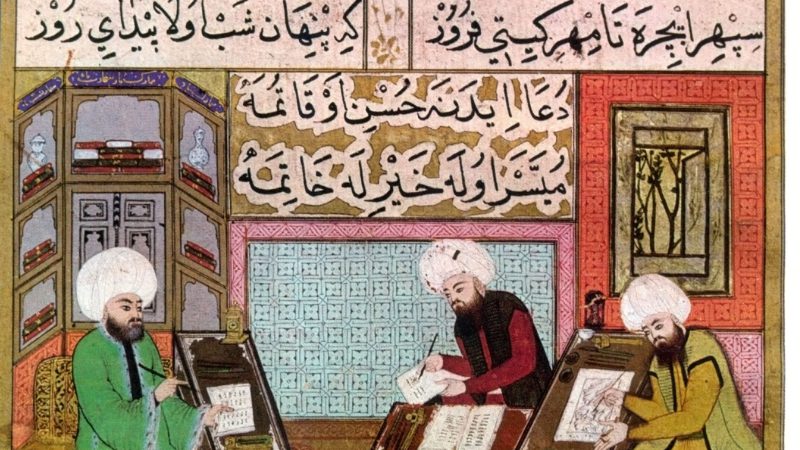 سپهر ايچره تا مهر كيتي فروز
كه پنهان شب اولا پيداي روز
دُعَا اِيدَنَه حُسْنِ اَوْقَاتُمَه
مُيَسَّر اوُلَه خَيْرِ لَه خَاتِمَه